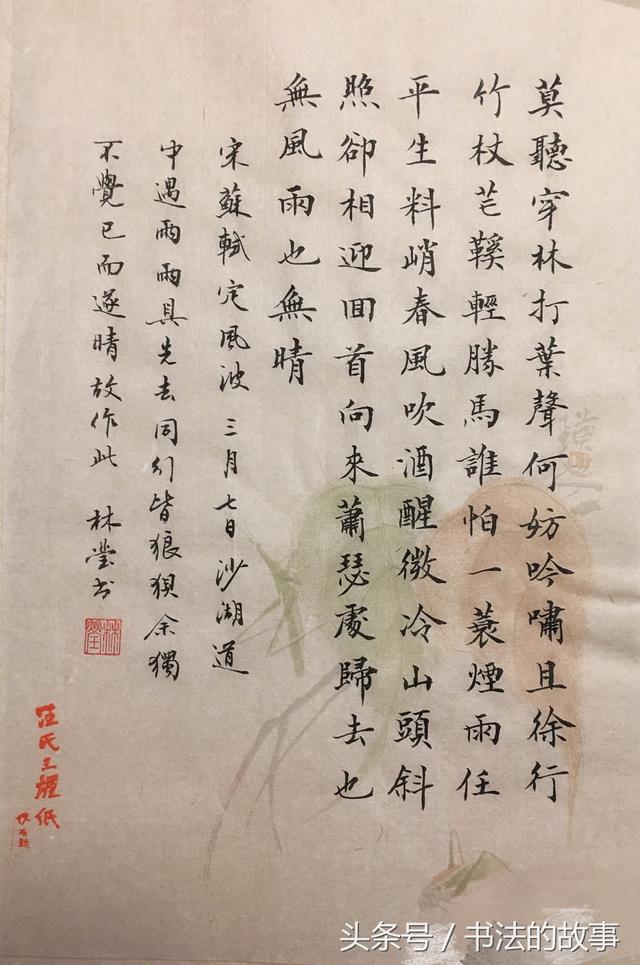 莫聽穿林打葉聲何妨吟嘯且徐行
竹杖芒鞵輕勝馬誰怕一蓑煙雨任
平生料峭春風吹酒醒微冷山頭斜
照卻相迎回首向來蕭瑟處歸去也
無風雨也無晴
宋蘇軾定風波 三月七日沙湖道
中遇雨雨具先去同行皆狼狽余獨
不覺已而遂晴故作此 林瑩書
林瑩
汪氏三體紙
頭条号/书法的故事